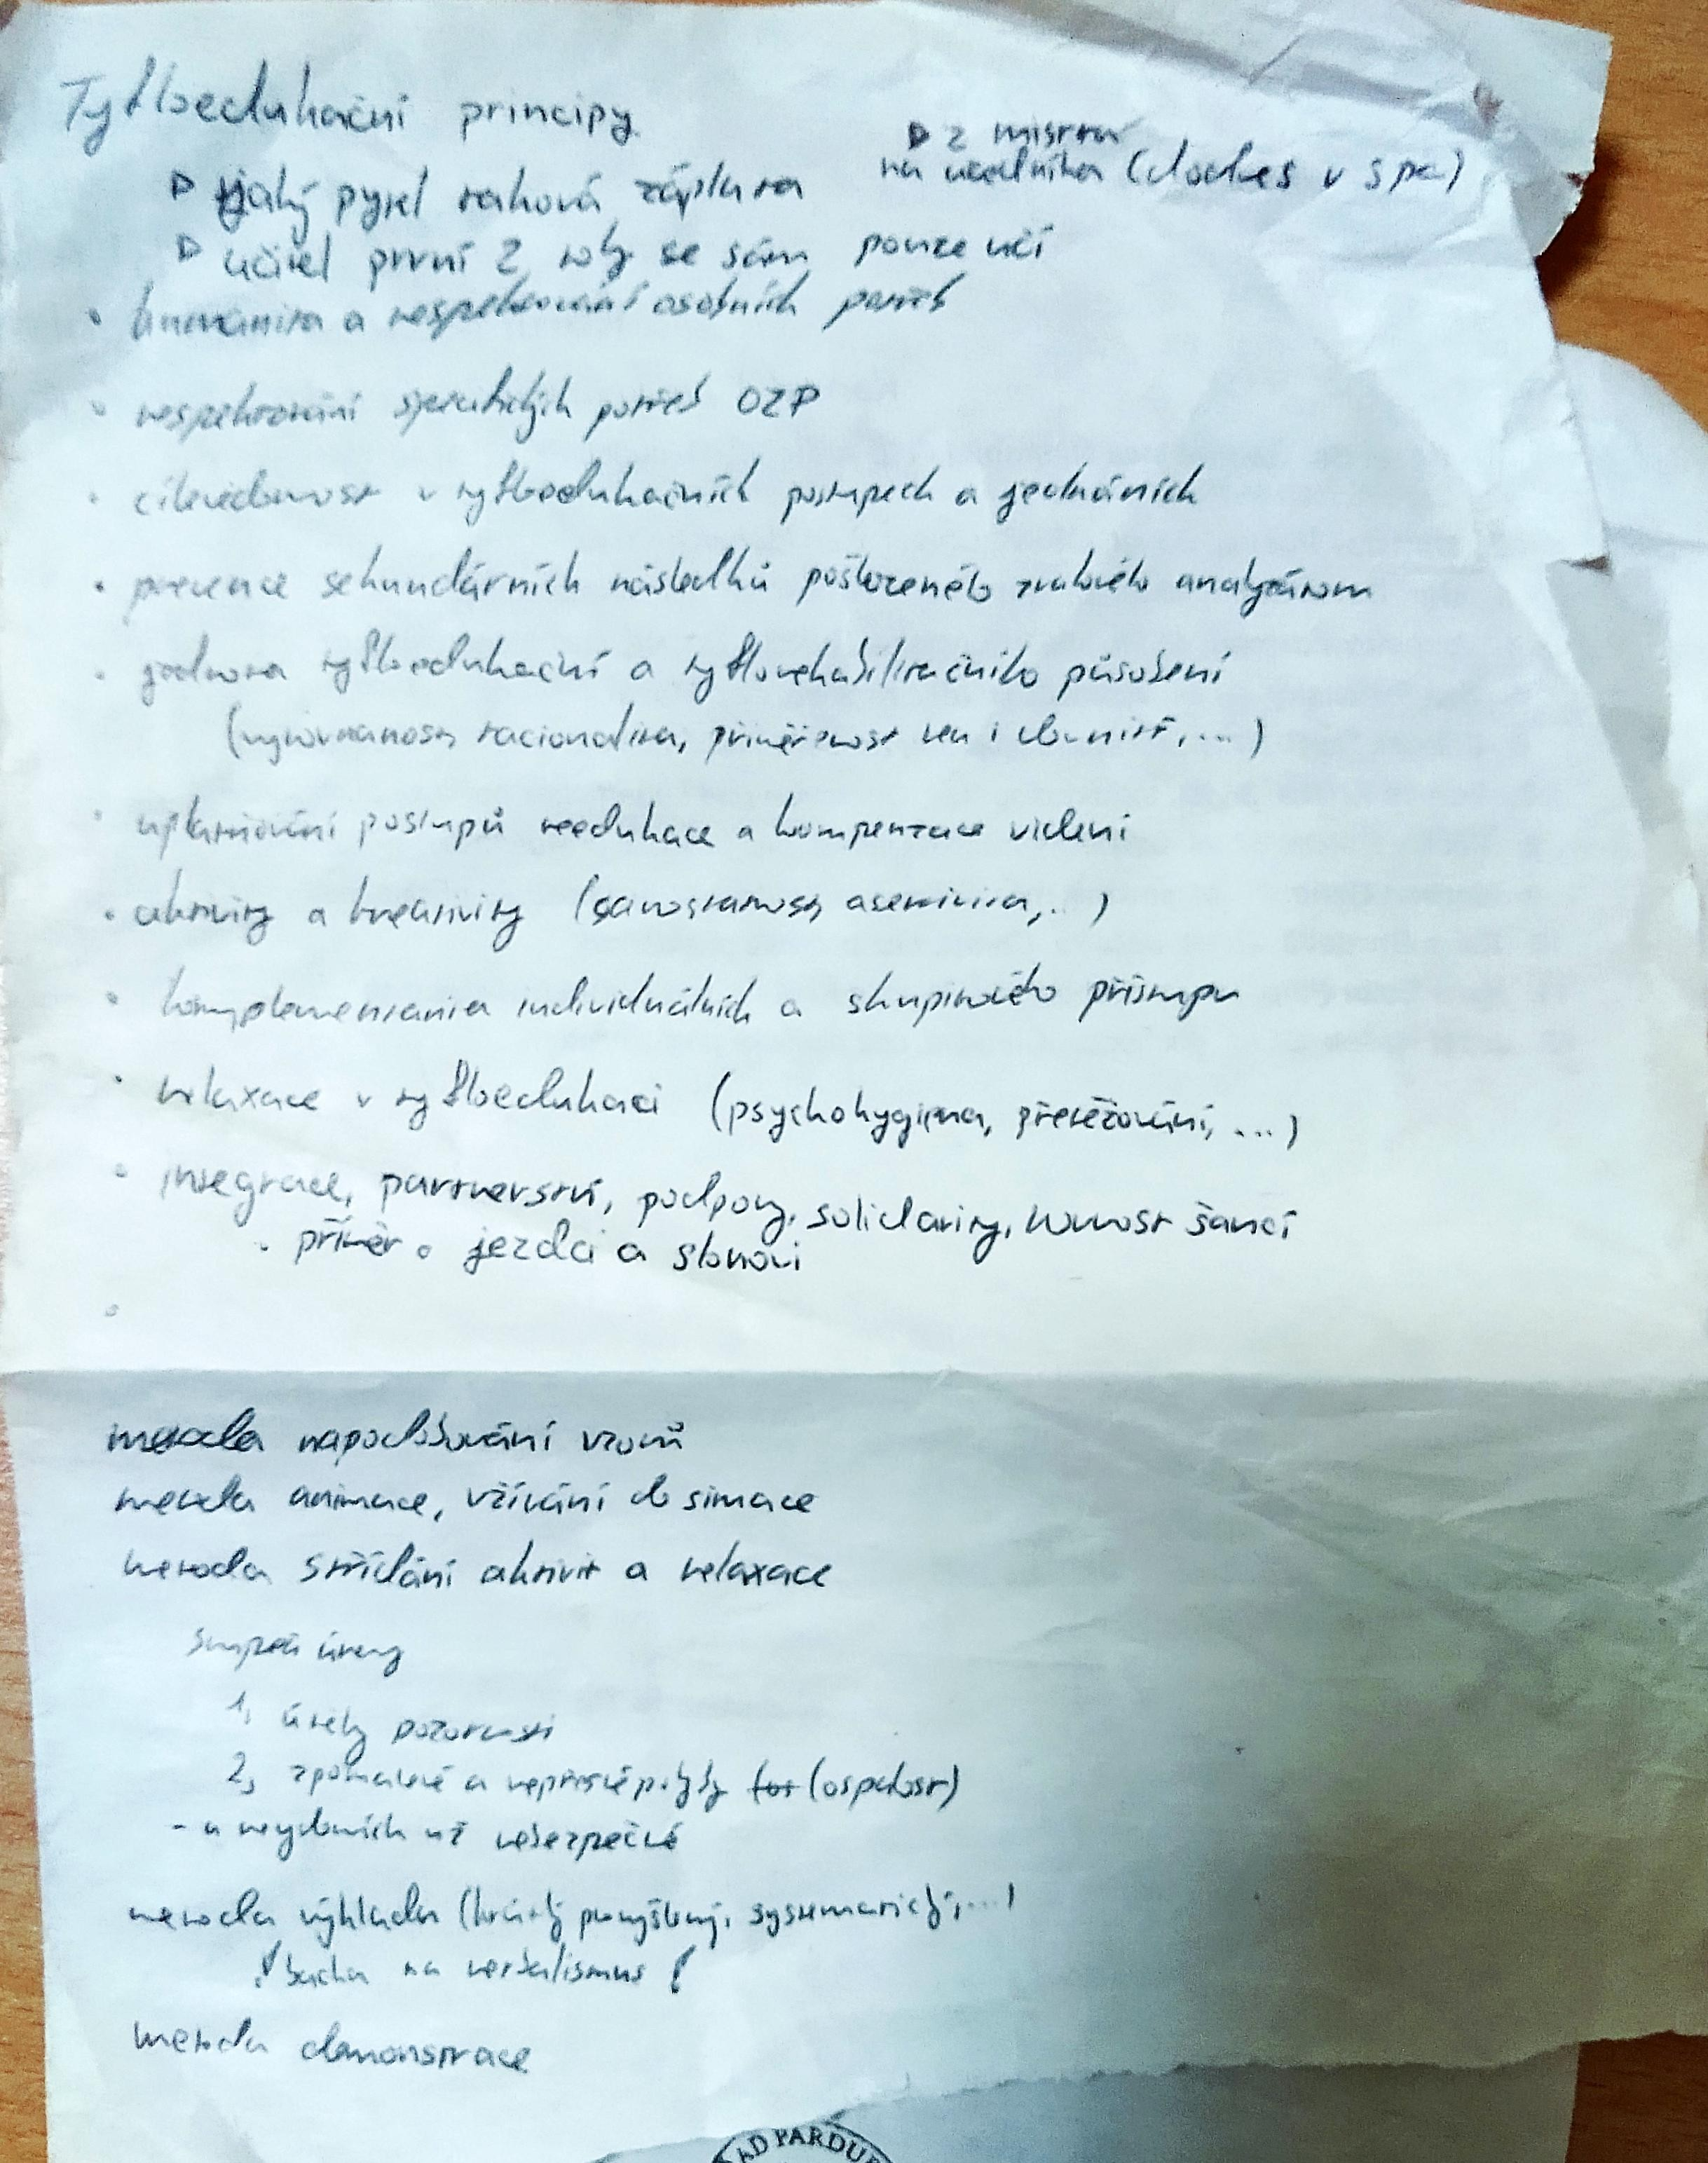 Tyfloedukační principy
▷ jaký pytel taková záplata
▷ z mistra
na učedníka (dockes v špc)
▷ učitel první 2 roky se sám pouze učí
• humanita a respektování osobních potřeb
• respektování specifických potřeb OZP
• cílevědomost v tyfloedukačních postupech a jednáních
• prevence sekundárních následků poškozeného zrakového analyzátoru
• jednota tyfloedukační a tyflorehabilitačního působení
(vyrovnanost, racionalita, přiměřenost věku i, ...)
• uplatňování postupů reedukace a kompenzace vidění
• aktivity a kreativity (samostatnost, asertivita, ..)
• komplementaria individuálních a skupinového přístupu
• relaxace v tyfloedukaci (psychohygiena, přetěžování, ...)
• integrace, partnerství, podpory, solidarity, rovnost šancí
• příměr o jezdci a slonovi
metoda napodobování vzorů
metoda animace, vžívání do situace
metoda střídání aktivit a relaxace
stupně únavy
1, úlety pozornosti
2, zpomalené a nepřesné pohyby (ospalost)
- u nevidomích už nebezpečné
metoda výkladu (krátký promyšlený, systematický, ...)
! bacha na verbalismus !
metoda demonstrace
AD PARDUB